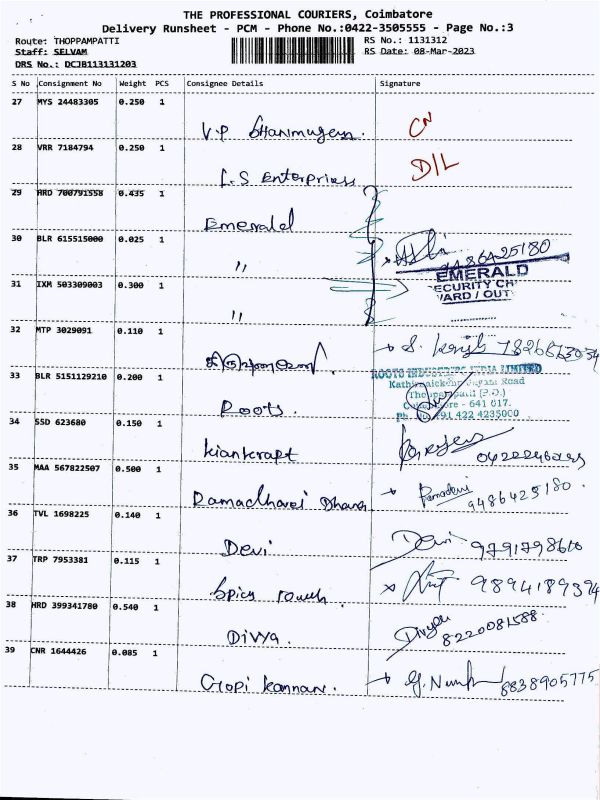 THE PROFESSIONAL COURIERS, Coimbatore
Delivery Runsheet - PCM - Phone No.:0422-3505555 - Page No.:3
Route: THOPPAMPATTI RS No.: 1131312
Staff: SELVAM RS Date: 08-Mar-2023
DRS No.: DCJB113131203
S No Consignment No Weight PCS Consignee Details Signature
27 MYS 24483305 0.250 1
V.P Shanmugam. CN
28 VRR 7184794 0.250 1
L.S Enterprises D/L
29 HRD 700791558 0.435 1
Emerald
30 BLR 615515000 0.025 1
" 9486425180
EMERALD
SECURITY CH
WARD / OUT
31 IXM 503309003 0.300 1
"
32 MTP 3029091 0.110 1
S.
33 BLR 5151129210 0.200 1
ROOTS INDUSTRIES INDIA LIMITED
Road
Thoppampatti (P.O.)
Coimbatore - 641 017.
Ph +91 422 4235000
Roots.
34 SSD 623680 0.150 1
kiankrapt
35 MAA 567822507 0.500 1
Ramadhavei Dhava Ramadevi
9486425180.
36 TVL 1698225 0.140 1
Devi Devi 9791798610
37 TRP 7953381 0.115 1
Spicy touch. 9894189394
38 HRD 399341780 0.540 1
Divya. Divya
8220081588.
39 CNR 1644426 0.085 1
Gopi kannan. G. 8838905775